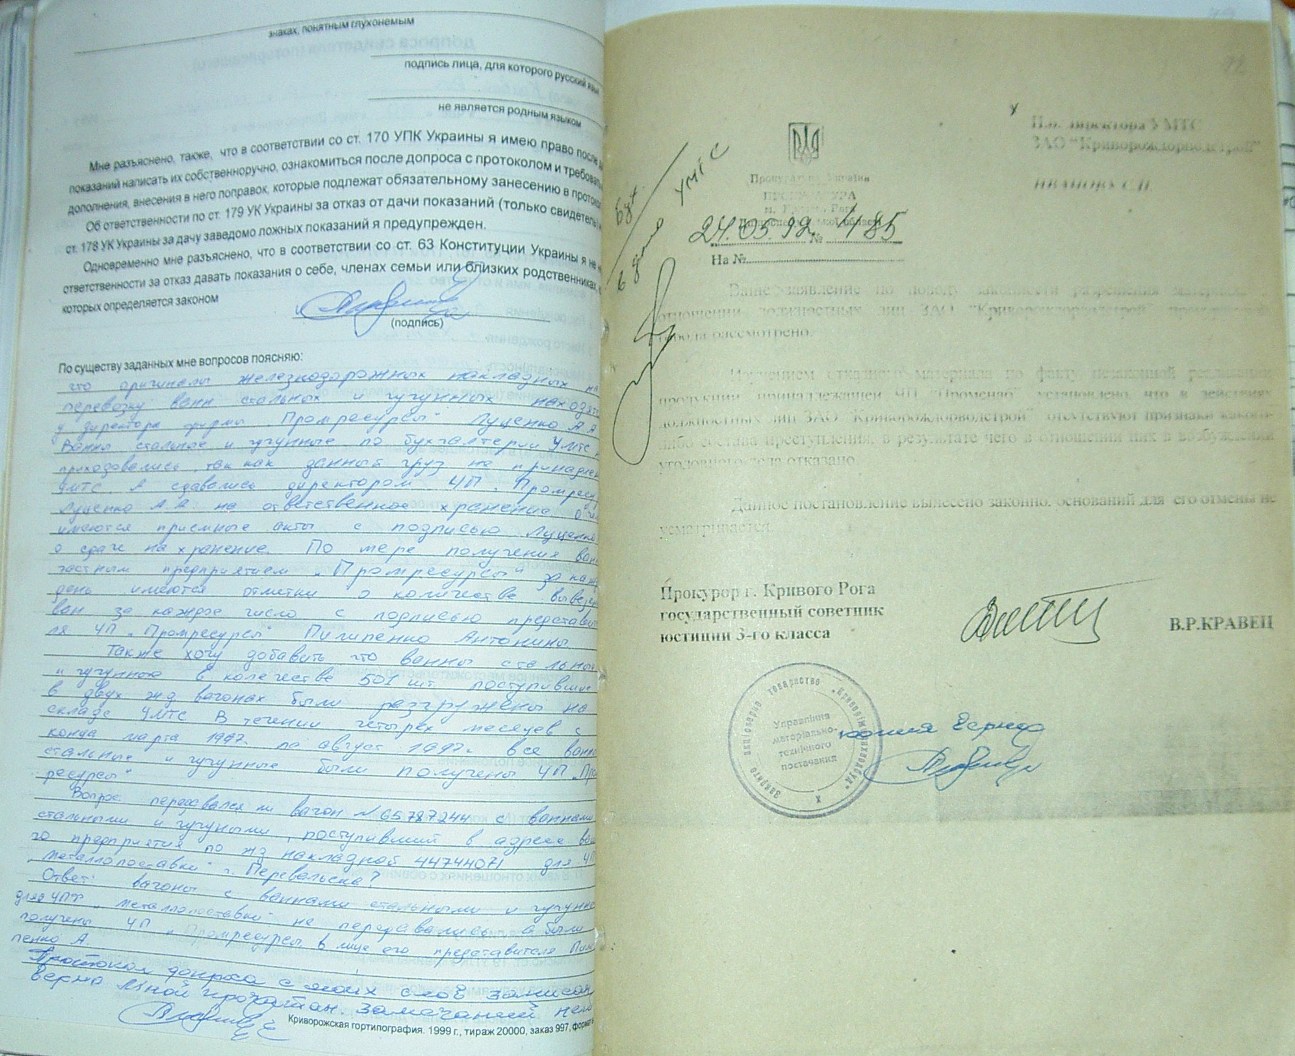 знаках, понятным глухонемым
подпись лица, для которого русский язык
не является родным языком
Мне разъяснено, также, что в соответствии со ст. 170 УПК Украины я имею право после
показаний написать их собственноручно, ознакомиться после допроса с протоколом и требовать
дополнения, внесения в него поправок, которые подлежат обязательному занесению в протокол
Об ответственности по ст. 179 УК Украины за отказ от дачи показаний (только свидетель)
ст. 178 УК Украины за дачу заведомо ложных показаний я предупрежден.
Одновременно мне разъяснено, что в соответствии со ст. 63 Конституции Украины я не
ответственности за отказ давать показания о себе, членах семьи или близких родственниках,
которых определяется законом
(подпись)
По существу заданных мне вопросов поясняю:
что оригиналы железнодорожных накладных на
перевозку ванн стальных и чугунных находятся
у директора фирмы "Промресурсы" Луценко А.А
Ванны стальные и чугунные по бухгалтерии УМТС
приходовались, так как данный груз не принадлеж
УМТС. А сдавались директором ЧП "Промресур
Луценко А.А. на ответственное хранение, о чем
имеются приемные акты с подписью Луценко
о сдаче на хранение. По мере получения ванн
частным предприятием "Промресурсы" за кажд
день имеются отметки о количестве вывезен
ван за каждое число с подписью представите
ля ЧП "Промресурсы" Пилипенко Антонины.
Также хочу добавить что ванны стальные
и чугунные в количестве 501 шт. поступившие
в двух жд вагонах были разгружены на
складе УМТС. В течении четырех месяцев с
конца марта 1997г. по август 1997г. все ванны
стальные и чугунные были получены ЧП "Пром
ресурсы"
Вопрос: передавался ли вагон №65787244 с ваннами
стальными и чугунными, поступивший в адрес ваше
го предприятия по жд накладной 44744071 для ЧП
"Металлопоставки" г. Перевальска?
Ответ: вагоны с ваннами стальными и чугунно
для ЧПФ "Металлопоставки" не передавались, а были
получены ЧП "Промресурсы" в лице его представителя Пили
пенко А.
Протокол допроса с моих слов записан
верно мной прочитан. Замечаний нет
Криворожская гортипография. 1999 г., тираж 20000, заказ 997, формат
И.о. директора УМТС
ЗАО "Криворождорводстрой"
ИВАНОВУ С.П.
Прокуратура Украины
ПРОКУРАТУРА
г. Кривого Рога
24.05.92 № 485
На №
УМТС
в дело
Ваше заявление по поводу законности разрешения материала в
отношении должностных лиц ЗАО "Криворождорводстрой"
города рассмотрено.
Изучением отказного материала по факту незаконной реализации
продукции, принадлежащей ЧП "Променао" установлено, что в действиях
должностных лиц ЗАО "Криворождорводстрой" отсутствуют признаки какого-
либо состава преступления, в результате чего в отношении них в возбуждении
уголовного дела отказано.
Данное постановление вынесено законно, оснований для его отмены не
усматривается.
Прокурор г. Кривого Рога
государственный советник
юстиции 3-го класса
В.Р.КРАВЕЦ
Управління
матеріально-
технічного
постачання
копия верна